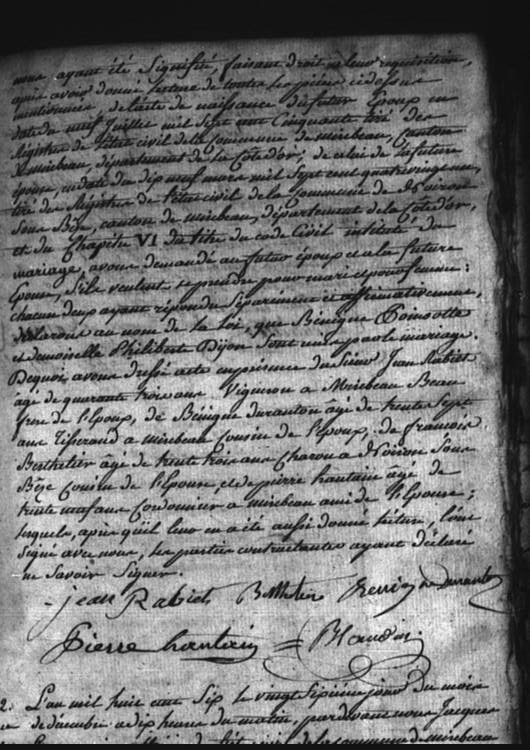 nous ayant été Signifié, faisant droit à leur requisition,
après avoir donné lecture de toutes les pièces cidessus
mentionnées, de l'acte de naissance du futur Epoux en
date du neuf Juillet mil Sept cent Cinquante tiré des
Registres de l'état civil de la Commune de mirebeau, Canton
de mirebeau, département de la Cote d'or; de celui de la future
épouse, en date du dix neuf mars mil Sept cent quatrevingt un,
tiré des Registres de l'état civil de la Commune de Noiron
Sous Bèze, canton de mirebeau, département de la Cote d'or,
et du Chapitre VI du titre du code Civil intitulé du
mariage, avons demandé au futur époux et a la future
Epouse, s'ils veulent se prendre pour mari et pour femme:
chacun deux ayant répondu Séparément et affirmativement,
déclarons au nom de la Loi, que Bénigne Poinsotte
et demoiselle Philibert Dijon Sont unis par le mariage.
Dequoi, avons dressé acte en présence du Sieur Jean Rabiet
âgé de quarante trois ans Vigneron a Mirebeau Beau
frère de l'Epoux, de Bénigne Duranton âgé de trente Sept
ans Tisserand a mirebeau Cousin de l'Epoux, de françois
Berthelier âgé de trente trois ans Charon a Noiron Sous
Bèze Cousin de l'Epouse, et de pierre hautain âgé de
trente neuf ans Cordonnier a mirebeau ami de l'Epouse;
lesquels, après qu'il leur en a été aussi donné lecture, l'ont
Signé avec nous, les parties contractantes ayant déclaré
ne Savoir Signer.
jean Rabiet Duranton
Pierre hautain
2. L'an mil huit cent Six, le vingt Sixième jour du mois
de décembre a dix heures du matin, pardevant nous Jacques
de l'état civil de la commune de mirebeau